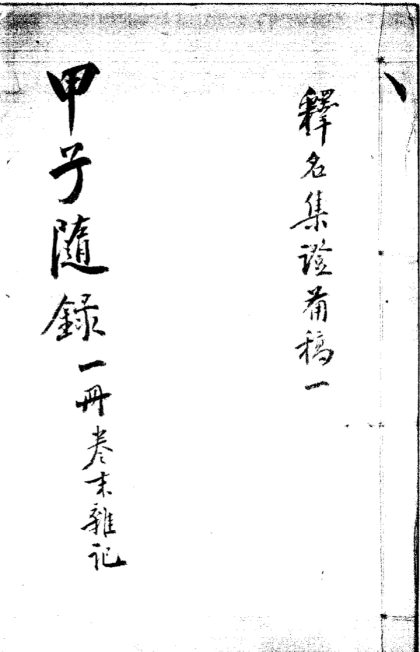 釋名集證首稿一
甲子隨錄一冊卷末雜記